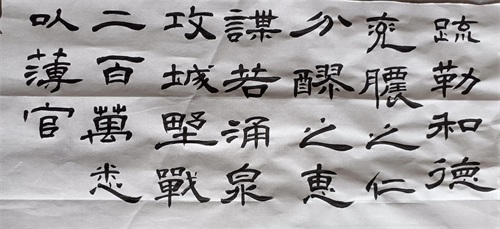 疏勒和德
兗膿之仁
分醪之惠
謀若涌泉
攻城墅戰
二百萬悉
以薄官